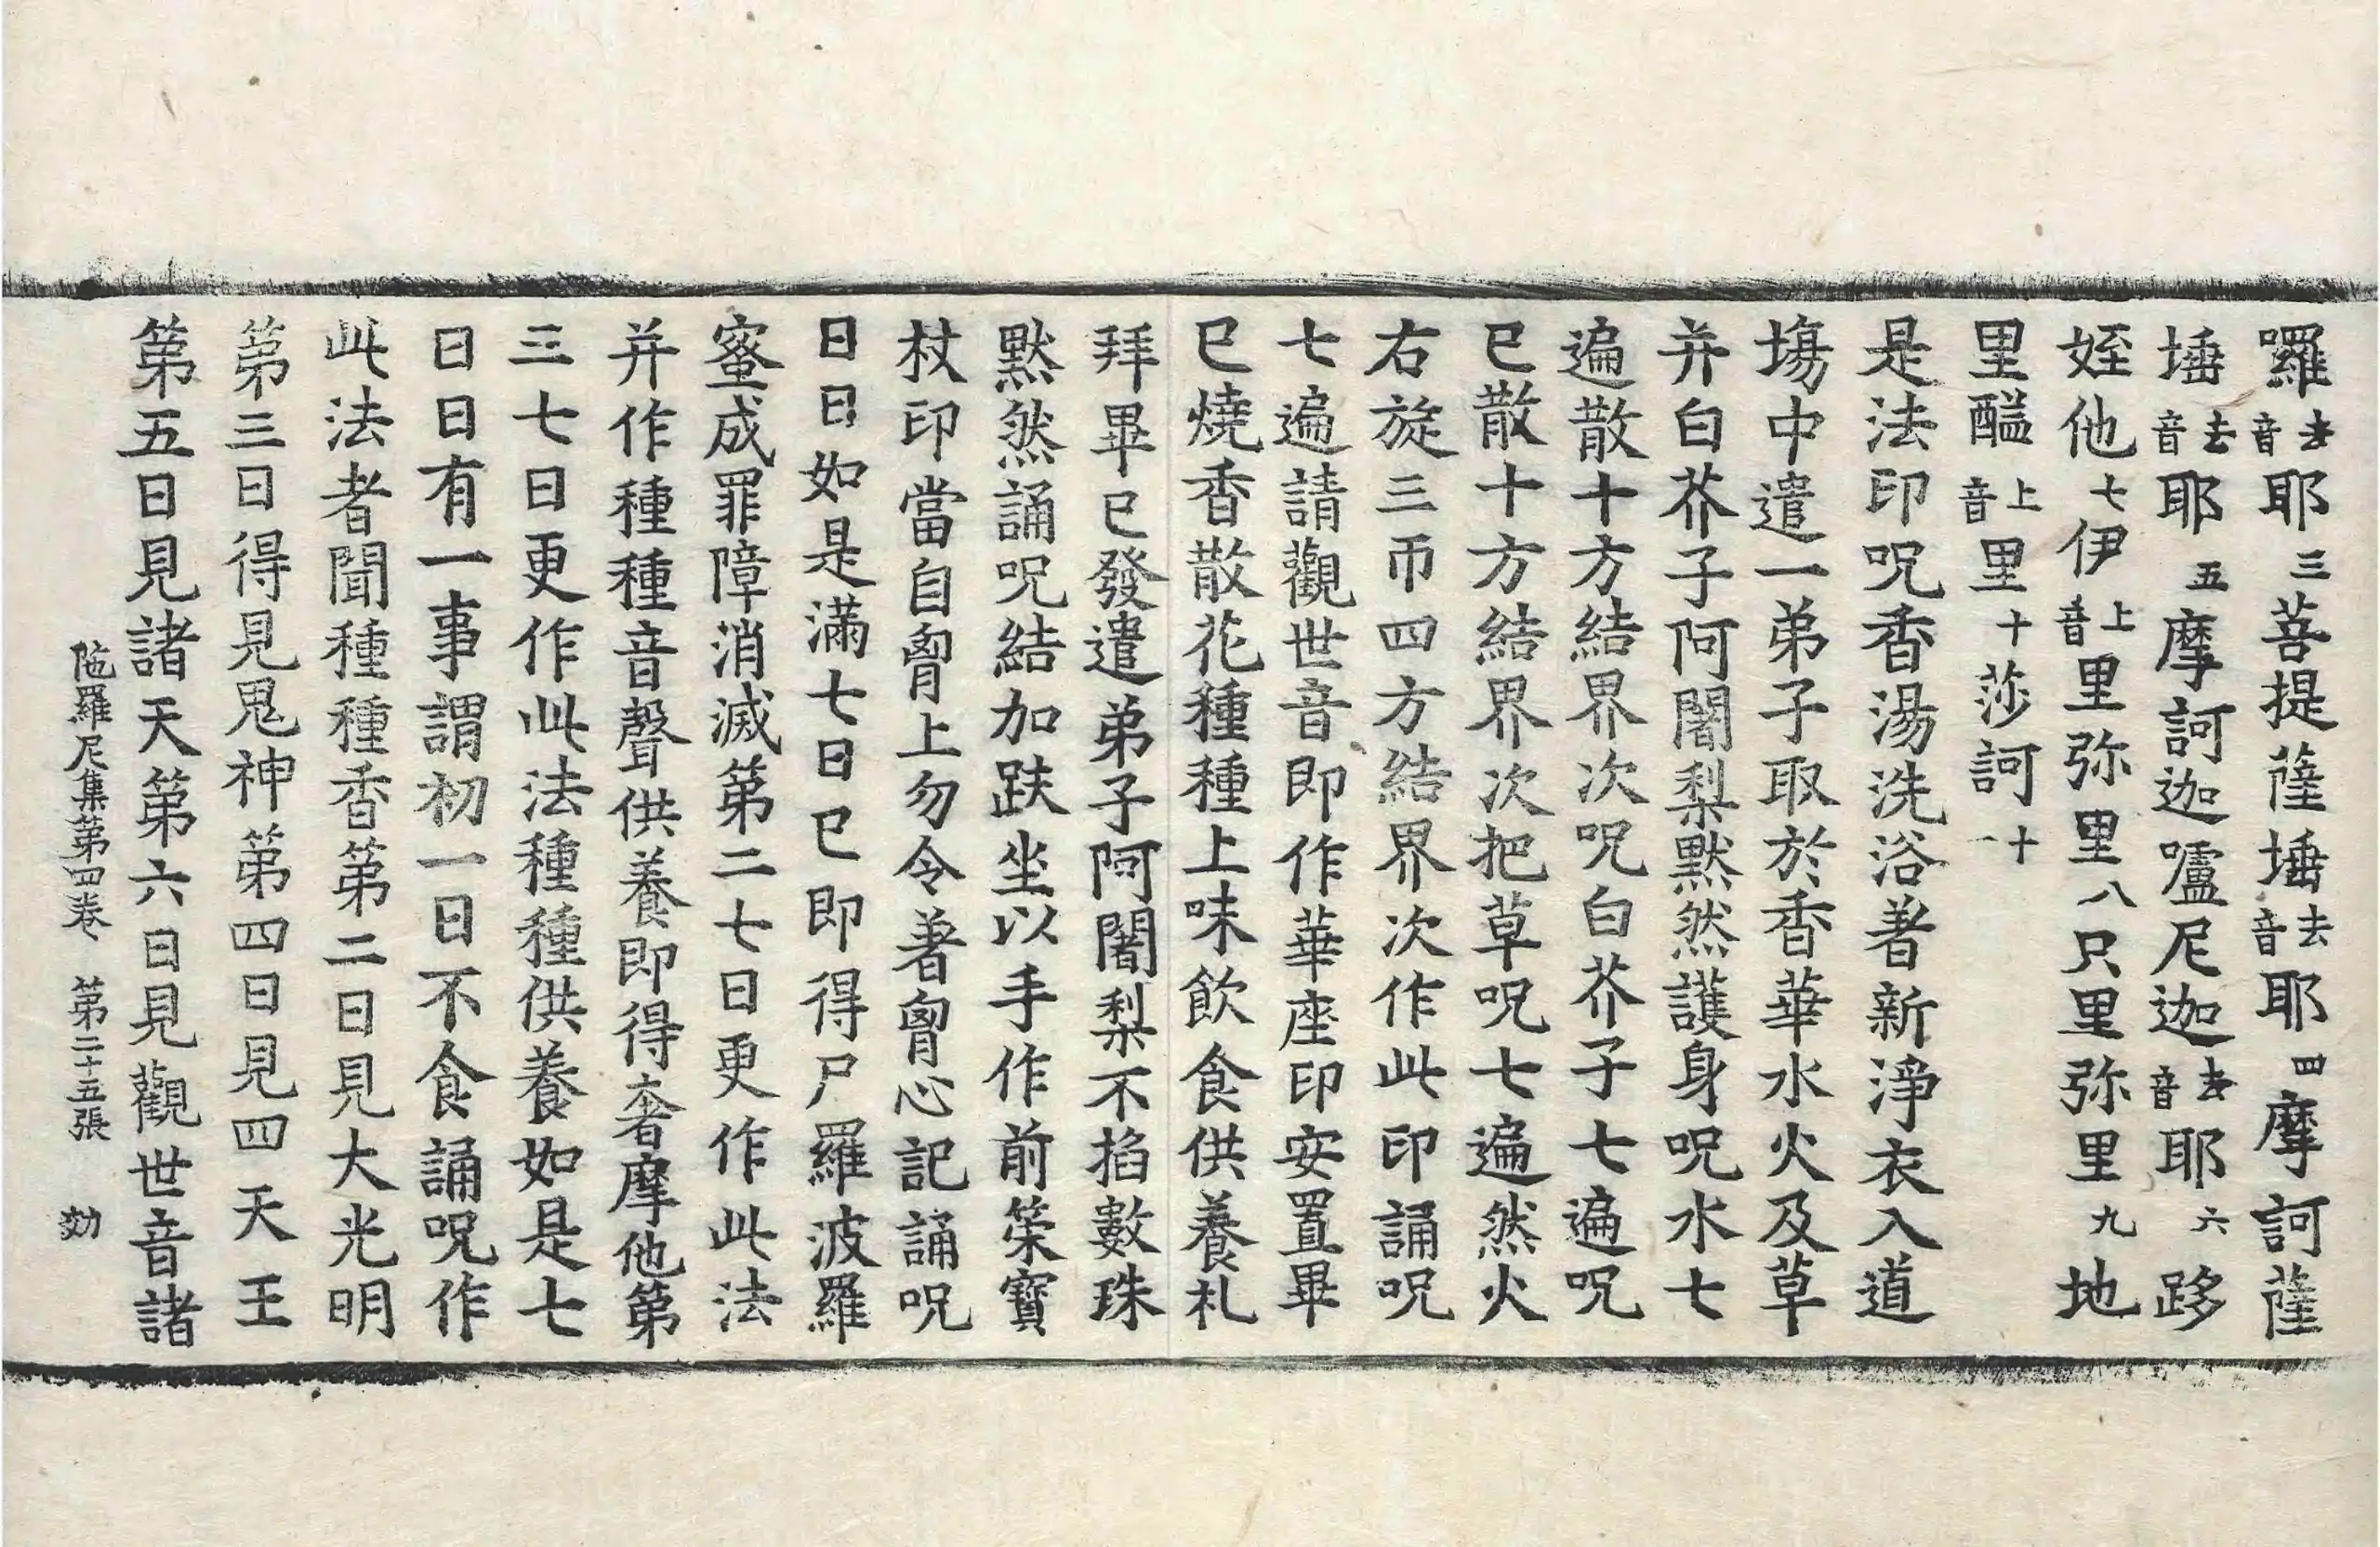 囉去音耶三菩提薩埵去音耶四摩訶薩
埵去音耶五摩訶迦嚧尼迦去音耶六跢
姪他七伊上音里弥里八只里弥里九地
里醯上音里十莎訶十一
是法印呪香湯洗浴著新淨衣入道
塲中遣一弟子取於香華水火及草
并白芥子阿闍梨默然護身呪水七
遍散十方結界次呪白芥子七遍呪
已散十方結界次把草呪七遍然火
右旋三帀四方結界次作此印誦呪
七遍請觀世音即作華座印安置畢
已燒香散花種種上味飲食供養礼
拜畢已發遣弟子阿闍梨不掐數珠
默然誦呪結加趺坐以手作前筞寶
杖印當自胷上勿令著胷心記誦呪
日日如是滿七日已即得尸羅波羅
蜜成罪障消滅第二七日更作此法
并作種種音聲供養即得奢摩他第
三七日更作此法種種供養如是七
日日有一事謂初一日不食誦呪作
此法者聞種種香第二日見大光明
第三日得見鬼神第四日見四天王
第五日見諸天第六日見觀世音諸
陁羅尼集第四卷 第二十五張 効